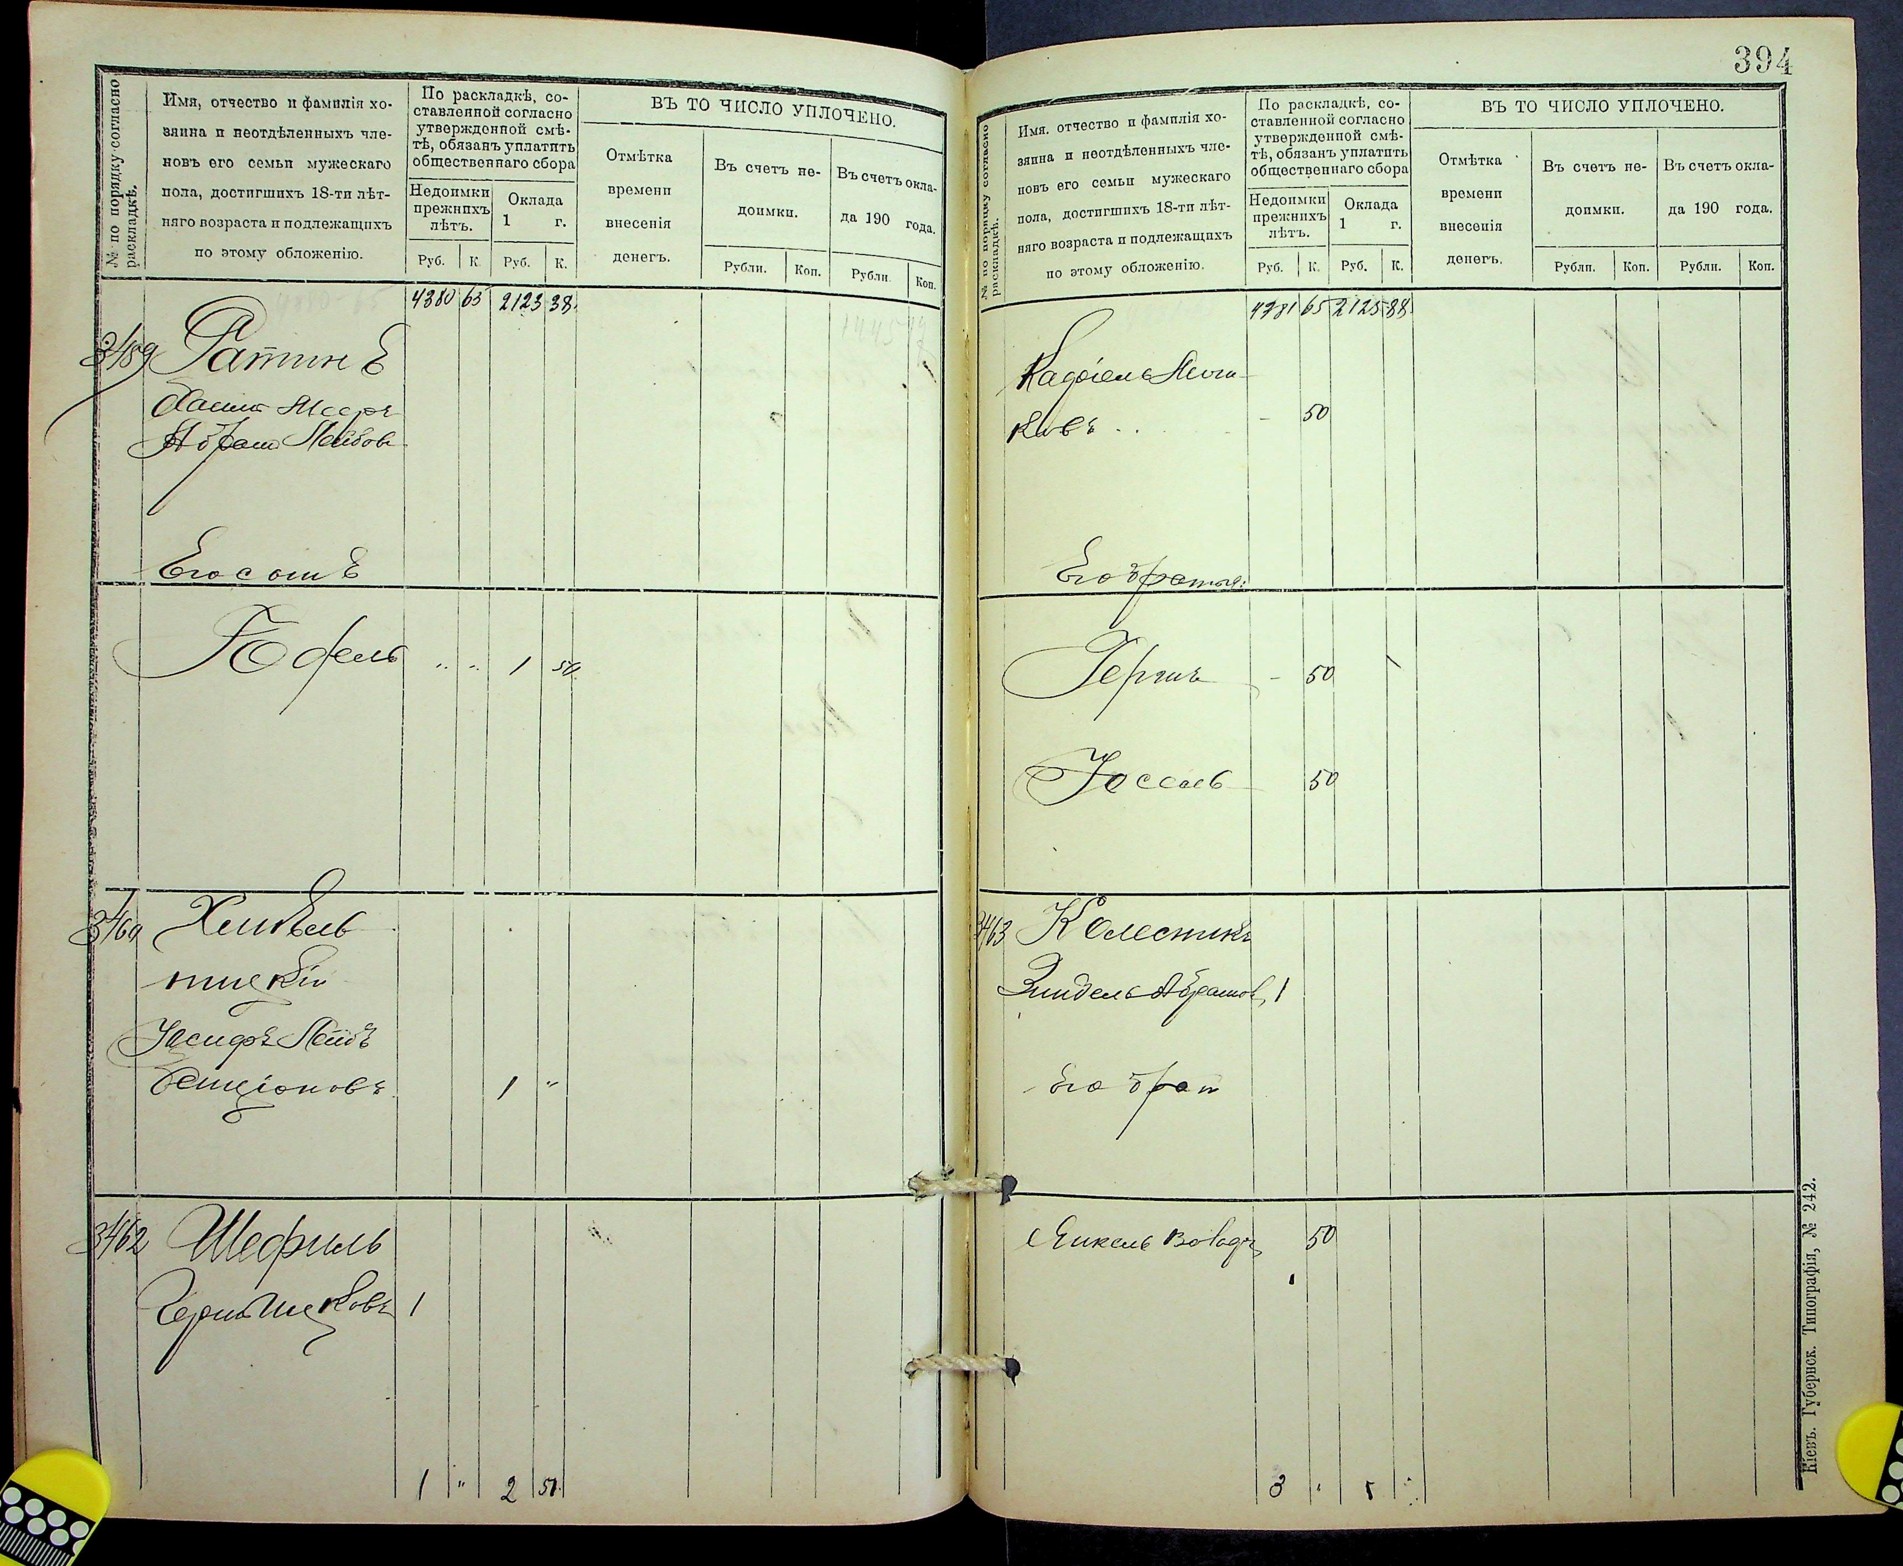 394
№ по порядку согласно раскладкѣ.
Имя, отчество и фамилія хо-
зяина и неотдѣленныхъ чле-
новъ его семьи мужескаго
пола, достигшихъ 18-ти лѣт-
няго возраста и подлежащихъ
по этому обложенію.
По раскладкѣ, со-
ставленной согласно
утвержденной смѣ-
тѣ, обязанъ уплатить
общественнаго сбора
Недоимки
прежнихъ
лѣтъ.
Оклада
1 г.
Руб. К. Руб. К.
ВЪ ТО ЧИСЛО УПЛОЧЕНО.
Отмѣтка
времени
внесенія
денегъ.
Въ счетъ не-
доимки.
Въ счетъ окла-
да 190 года.
Рубли. Коп. Рубли Коп.
4380 65 2123 38
3459
Хаимъ Мееръ
Абрам Лейбов
Его сынъ
Іофель " " 1 50
Хмѣль
ницкій
Іосифъ Лейбъ
Бенціоновъ 1 "
3462 Шефтель
1
1 " 2 50
№ по порядку согласно раскладкѣ.
Имя, отчество и фамилія хо-
зяина и неотдѣленныхъ чле-
новъ его семьи мужескаго
пола, достигшихъ 18-ти лѣт-
няго возраста и подлежащихъ
по этому обложенію.
По раскладкѣ, со-
ставленной согласно
утвержденной смѣ-
тѣ, обязанъ уплатить
общественнаго сбора
Недоимки
прежнихъ
лѣтъ.
Оклада
1 г.
Руб. К. Руб. К.
ВЪ ТО ЧИСЛО УПЛОЧЕНО.
Отмѣтка
времени
внесенія
денегъ.
Въ счетъ не-
доимки.
Въ счетъ окла-
да 190 года.
Рубли. Коп. Рубли. Коп.
4381 65 2125 88
50
Его братья:
Гершъ - 50
Іоссель 50
3463 Колесникъ
Зиндель Абрамов, 1
Его брат
Янкель 50
3
Кіевъ. Губернск. Типографія, № 242.